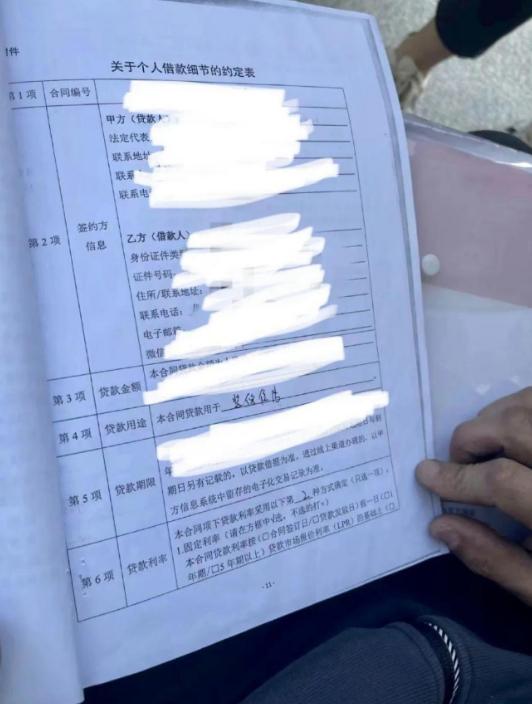 附件
关于个人借款细节的约定表
第1项 合同编号
第2项 签约方信息
甲方（贷款人
法定代表
联系地址
联系
联系电
乙方（借款人）
身份证件类
证件号码：
住所/联系地址：
联系电话：
电子邮箱
微信
第3项 贷款金额 本合同贷款金额为人
第4项 贷款用途 本合同贷款用于
第5项 贷款期限
年
期日另有记载的，以贷款借据为准，通过线上渠道办理的，以甲
方信息系统中留存的电子化交易记录为准。
第6项 贷款利率
本合同项下贷款利率采用以下第 2 种方式确定（只选一项）：
1.固定利率（请在方框中√选，不选的打×）
本合同贷款利率按（□合同签订日/□贷款发放日）前一日（□1
年期/□5年期以上）贷款市场报价利率（LPR）的基础上（□
-11-